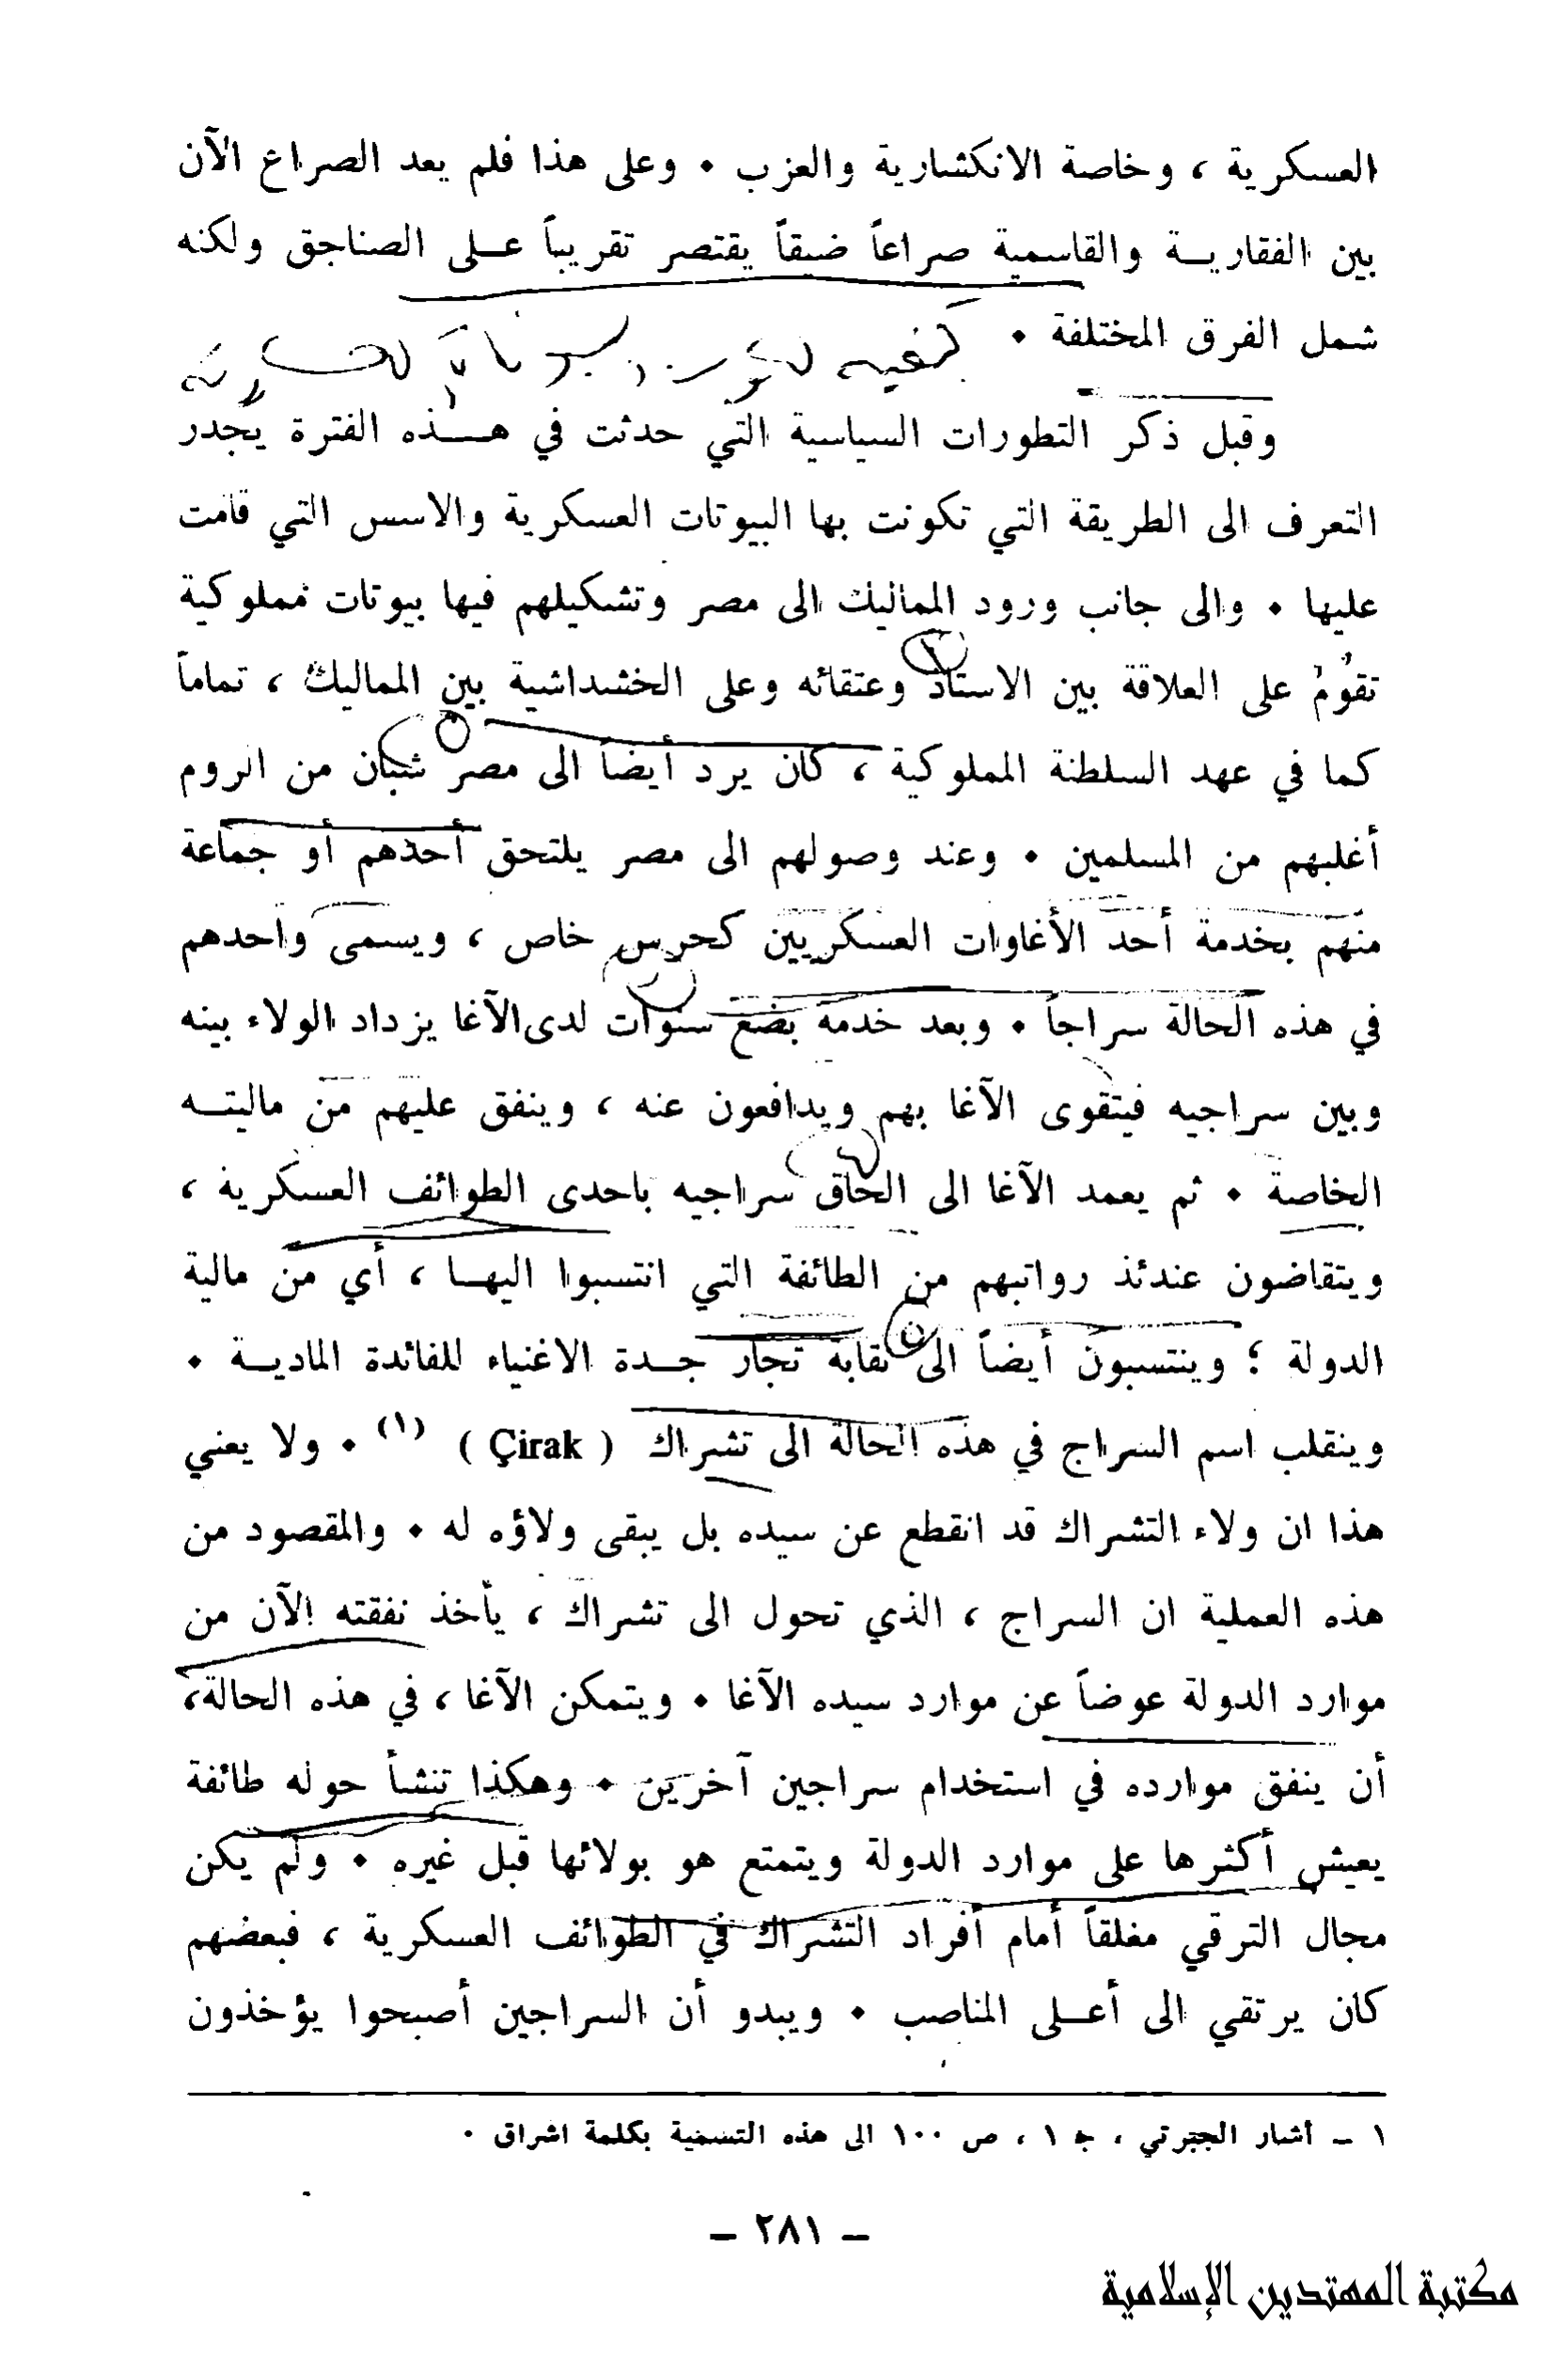 العسكرية ، وخاصة الانكشارية والعزب . وعلى هذا فلم يعد الصراع الآن
بين الفقاريـة والقاسمية صراعاً ضيقاً يقتصر تقريباً عـلى الصناجق ولكنه
شمل الفرق المختلفة .
وقبل ذكر التطورات السياسية التي حدثت في هـذه الفترة يجدر
التعرف الى الطريقة التي تكونت بها البيوتات العسكرية والاسس التي قامت
عليها . والى جانب ورود المماليك الى مصر وتشكيلهم فيها بيوتات مملوكية
تقوم على العلاقة بين الاستاذ وعتقائه وعلى الخشداشية بين المماليك ، تماماً
كما في عهد السلطنة المملوكية ، كان يرد أيضاً الى مصر شبان من الروم
أغلبهم من المسلمين . وعند وصولهم الى مصر يلتحق أحدهم أو جماعة
منهم بخدمة أحد الأغاوات العسكريين كحرس خاص ، ويسمى واحدهم
في هذه الحالة سراجاً . وبعد خدمة بضع سنوات لدى الآغا يزداد الولاء بينه
وبين سراجيه فيتقوى الآغا بهم ويدافعون عنه ، وينفق عليهم من ماليتـه
الخاصة . ثم يعمد الآغا الى الحاق سراجيه باحدى الطوائف العسكرية ،
ويتقاضون عندئذ رواتبهم من الطائفة التي انتسبوا اليهـا ، أي من مالية
الدولة ؛ وينتسبون أيضاً الى نقابة تجار جـدة الاغنياء للفائدة الماديـة .
وينقلب اسم السراج في هذه الحالة الى تشراك ( Çirak ) (١) . ولا يعني
هذا ان ولاء التشراك قد انقطع عن سيده بل يبقى ولاؤه له . والمقصود من
هذه العملية ان السراج ، الذي تحول الى تشراك ، يأخذ نفقته الآن من
موارد الدولة عوضاً عن موارد سيده الآغا . ويتمكن الآغا ، في هذه الحالة،
أن ينفق موارده في استخدام سراجين آخرين . وهكذا تنشأ حوله طائفة
يعيش أكثرها على موارد الدولة ويتمتع هو بولائها قبل غيره . ولم يكن
مجال الترقي مغلقاً أمام أفراد التشراك في الطوائف العسكرية ، فبعضهم
كان يرتقي الى أعـلى المناصب . ويبدو أن السراجين أصبحوا يؤخذون
١ ــ أشار الجبرتي ، جـ ١ ، ص ١٠٠ الى هذه التسمية بكلمة اشراق .
ــ ٢٨١ ــ
مكتبة المهتدين الإسلامية